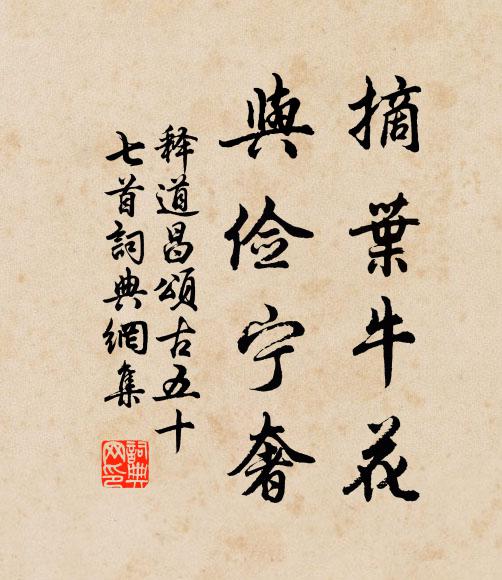 摘葉牛花
與儉宁奢
释道昌頌古五十
七首詞典網集
詞典
网印